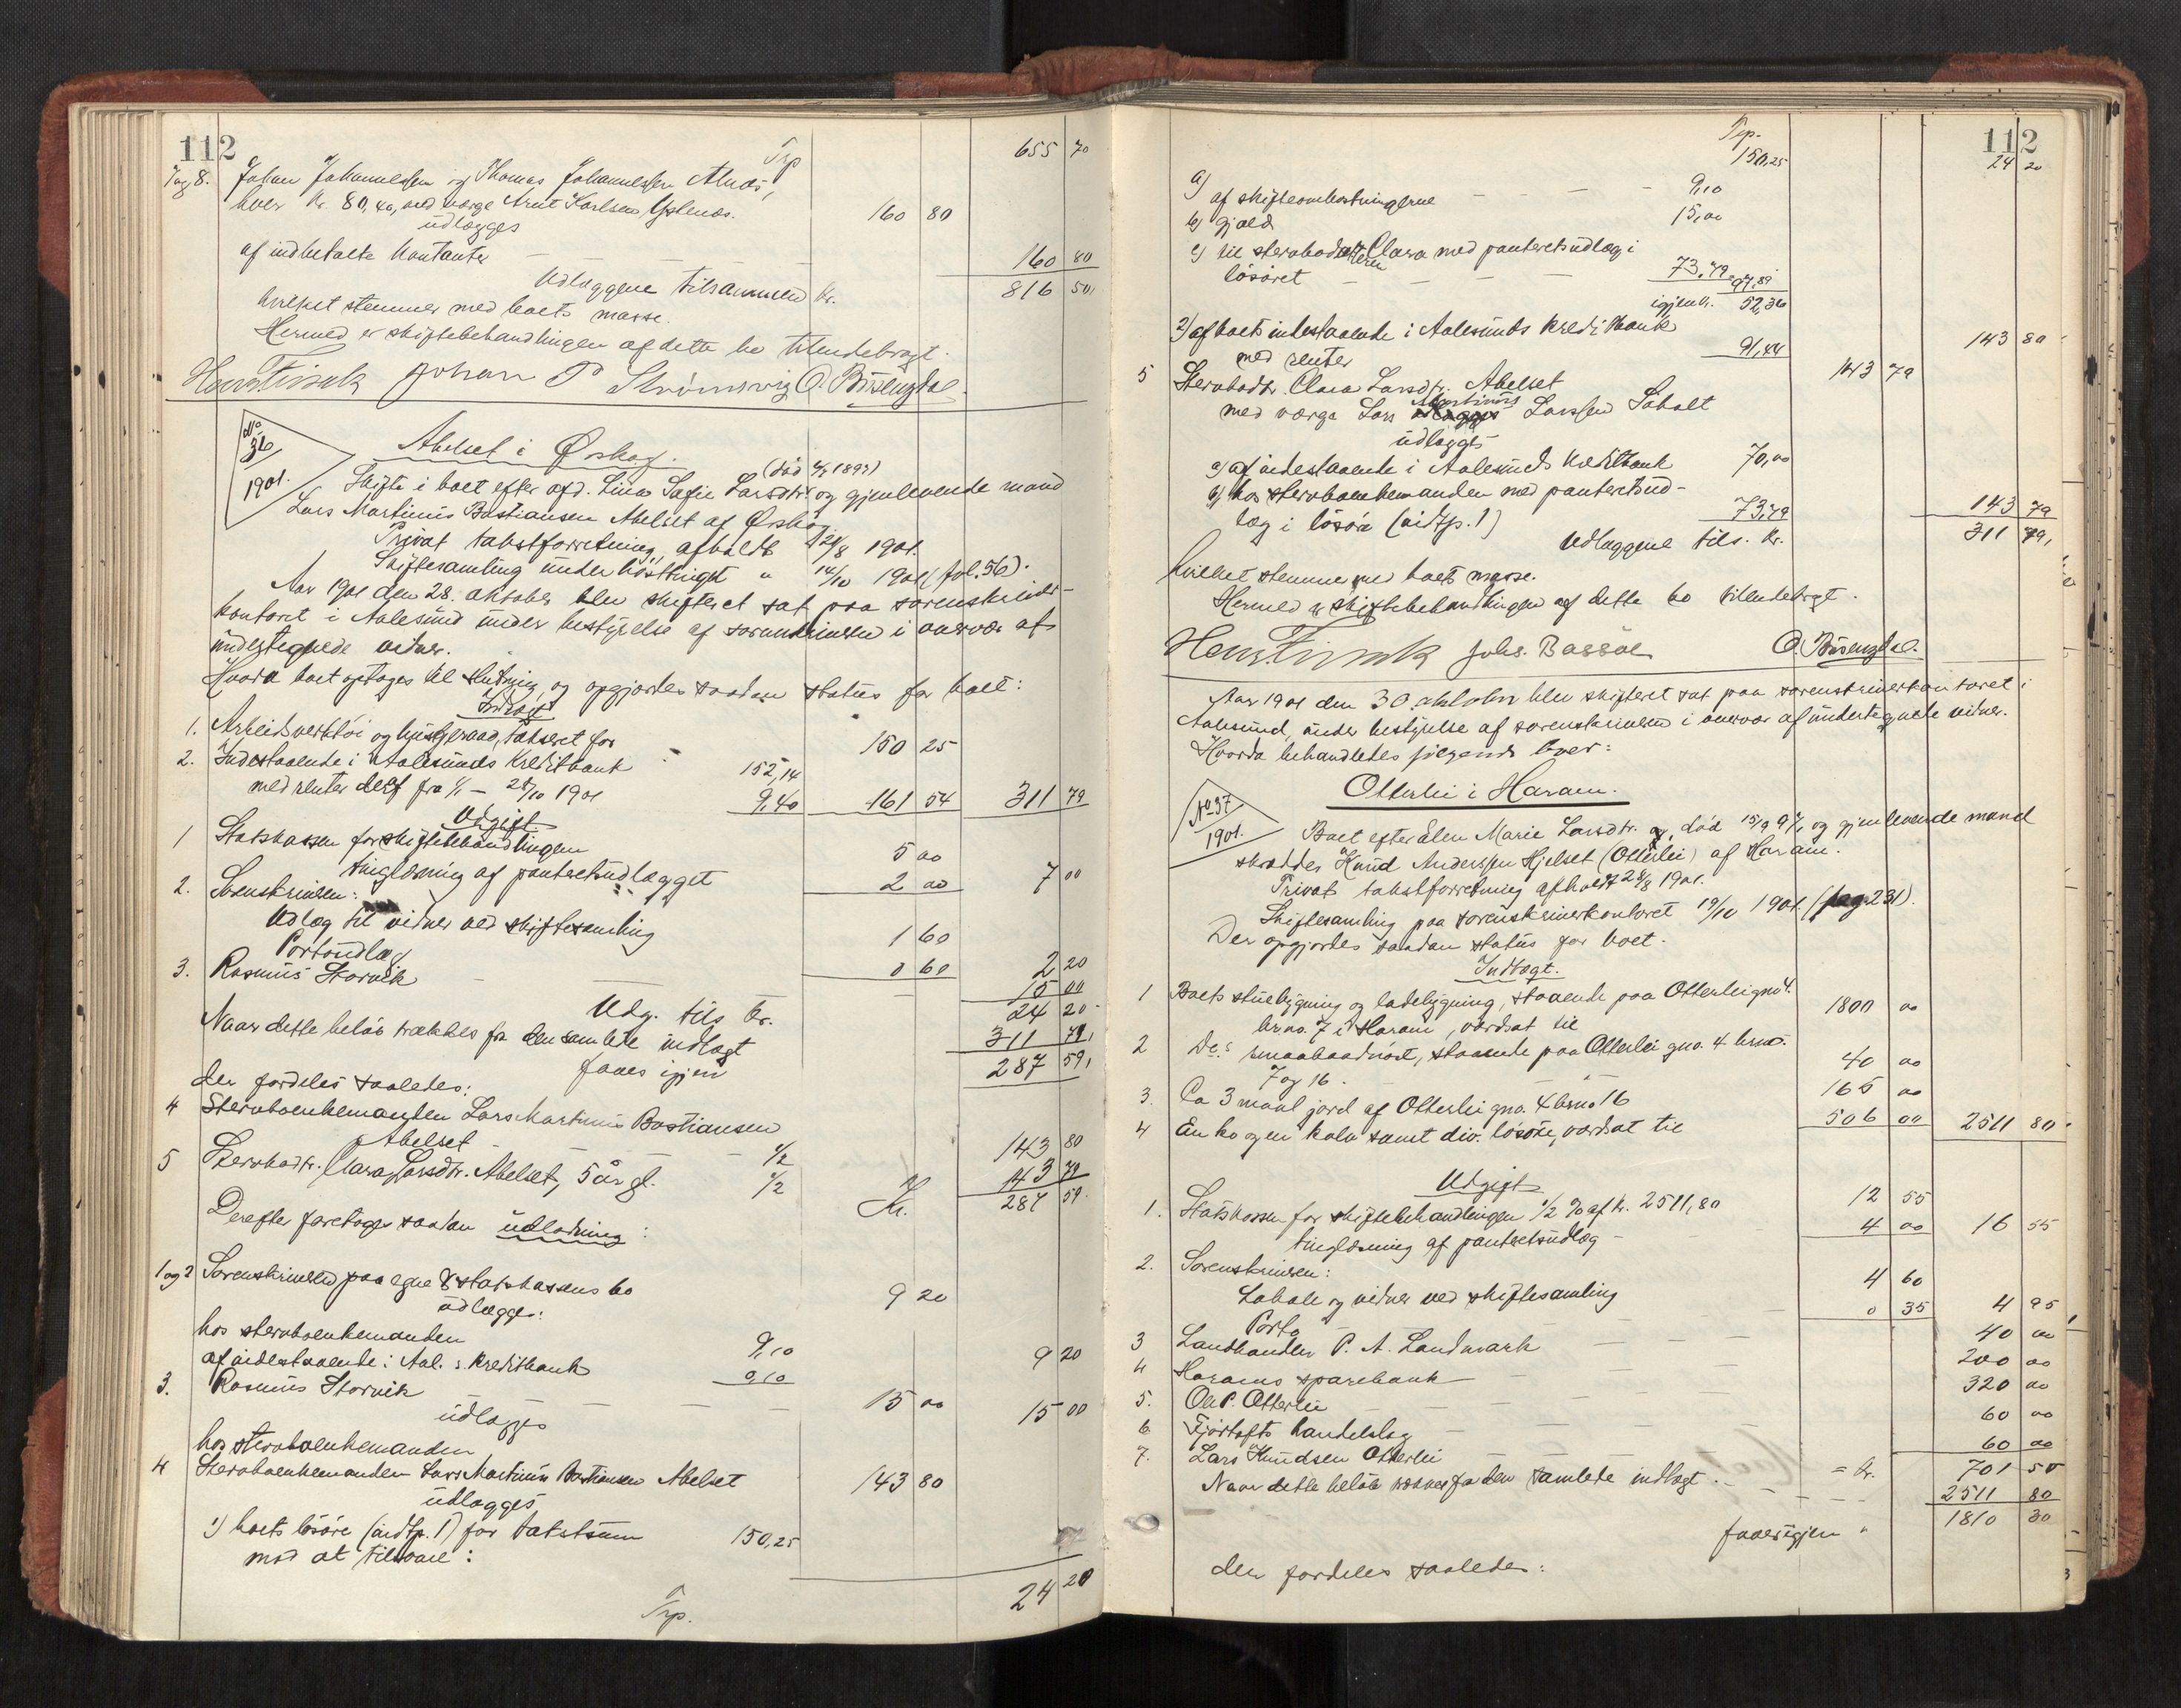 112
Trp 655 70
7 og 8. Johan Johannessen og Thomas Johannessen Alnæs,
hver Kr. 80,40, med værge Arnt Karlsen Yslenæs. 160 80
udlægges
af indbetalte Kontanter 160 80
Udlæggene tilsammen Kr. 816 50
hvilket stemmer med boets masse.
Hermed er skiftebehandlingen af dette bo tilendebragt.
Johan P Strømsvig O. Busengdal
No 36 1901.
Abelset i Ørskog.
(død 4/1 1899)
Skifte i boet efter afd. Lina Sofie Larsdtr. og gjenlevende mand
Lars Martinus Bastiansen Abelset af Ørskog.
Privat takstforretning afholdt 24/8 1901.
Skiftesamling under høsttinget " 14/10 1901 (fol. 56).
Aar 1901 den 28. oktober blev skifteret sat paa sorenskriver-
kontoret i Aalesund under bestyrelse af sorenskriveren i overvær af
undertegnede vidner.
Hvorda boet optages til slutning, og opgjordes saadan status for boet:
Indtægt
1. Arbeidsverktøi og husgeraad, takseret for 150 25
2. Indestaaende i Aalesunds Kreditbank 152,14
med renter deraf fra 1/1 - 28/10 1901 9,40 161 54 311 79
Udgift
1 Statskassen for skiftebehandlingen 5 00
tinglæsning af panteretsudlægget 2 00 7 00
2. Sorenskriveren:
Udlæg til vidner ved skiftesamling 1 60
Portoudlæg 0 60 2 20
3. Rasmus Storvik 15 00
Udg. tils Kr. 24 20
Naar dette beløb trækkes fra den samlede indtægt 311 79
faaes igjen 287 59
der fordeles saaledes:
4 Stervboenkemanden Lars Martinus Bastiansen
Abelset 1/2 143 80
5 Stervbodtr. Clara Larsdtr. Abelset, 5 år gl. 1/2 143 79
Kr. 287 59
Derefter foretoges saadan udlodning:
1 og 2 Sorenskriveren paa egne & statskassens bo 9 20
udlægges:
hos stervboenkemanden 9,10
af indestaaende i Aal.s Kreditbank 0,10 9 20
3. Rasmus Storvik 15 00
udlægges
hos stervboenkemanden 15 00
4 Stervboenkemanden Lars Martinus Bastiansen Abelset 143 80
udlægges
1) boets løsøre (indtp. 1) for takstsum 150,25
mod at tilsvare:
Trp. 24 20
112
Trp. 150,25 24 20
a) af skifteomkostningerne 9,10
b) gjæld 15,00
c) til stervbodatteren Clara med panteretsudlæg i
løsøret 73,79 97,89
igjen Kr. 52,36
2) af boets indestaaende i Aalesunds Kreditbank
med renter 91,44 143 80
5 Stervbodtr. Clara Larsdtr. Abelset 143 79
med værge Lars Martinus Larssen Søholt
udlægges
a) af indestaaende i Aalesunds Kreditbank 70,00
b) hos stervboenkemanden med panteretsud-
læg i løsøre (indtp. 1) 73,79 143 79
Udlæggene tils. Kr. 311 79
hvilket stemmer med boets masse.
Hermed er skiftebehandlingen af dette bo tilendebragt.
Johs. Bassøe O. Busengdal.
Aar 1901 den 30. oktober blev skifteret sat paa sorenskriverkontoret i
Aalesund, under bestyrelse af sorenskriveren i overvær af undertegnede vidner.
Hvorda behandledes følgende boer:
No 37 1901.
Otterlei i Haram.
Boet efter Elen Marie Larsdtr. død 15/9 97, og gjenlevende mand
skrædder Knud Anderssen Hjelset (Otterlei) af Haram.
Privat takstforretning afholdt 28/8 1901.
Skiftesamling paa sorenskriverkontoret 19/10 1901 (pag. 231).
Der opgjordes saadan status for boet.
Indtægt.
1 Boets stuebygning og ladebygning, staaende paa Otterlei gno 4.
brno. 7 i Haram, værdsat til 1800 00
2 Do.s smaabaadnøst, staaende paa Otterlei gno. 4 brno.
7 og 16. 40 00
3. Ca 3 maal jord af Otterlei gno. 4 brno 16 165 00
4 En ko og en kalv samt div. løsøre, værdsat til 506 00 2511 80
Udgift
1. Statskassen for skiftebehandlingen 1/2 % af Kr. 2511,80 12 55
tinglæsning af panteretsudlæg 4 00 16 55
2. Sorenskriveren:
Lokale og vidner ved skiftesamling 4 60
Porto 0 35 4 95
3 Landhandler P. A. Landmark 40 00
4 Harams sparebank 200 00
5. Ole P. Otterlei 320 00
6 Fjørtofts handelslag 60 00
7. Lars Knudsen Otterlei 60 00
= Kr. 701 50
Naar dette beløb trækkes fra den samlede indtægt 2511 80
faaes igjen " 1810 30
der fordeles saaledes: